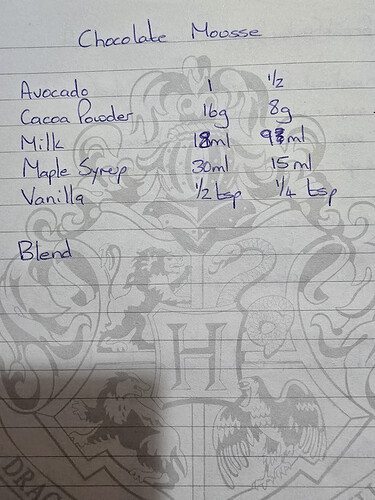 Chocolate Mousse
Avocado 1 1/2
Cacoa Powder 16g 8g
Milk 18ml 9ml
Maple Syrup 30ml 15ml
Vanilla 1/2 tsp 1/4 tsp
Blend
H
DRAC